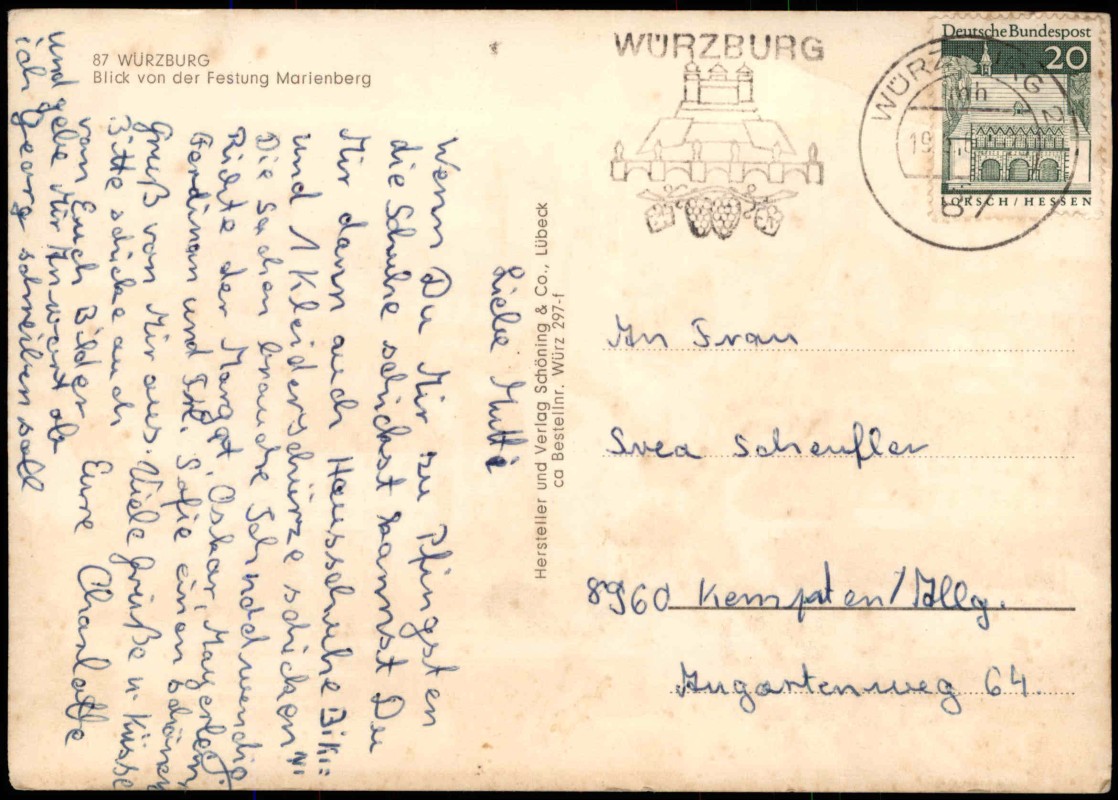 87 WÜRZBURG
Blick von der Festung Marienberg
Liebe Mutti
Wenn Du Mir zu Pfingsten
die Schuhe schickst kannst Du
Mir dann auch Hausschuhe Biki=
und 1 Kleiderschürze schicken ni
Die Sachen brauche Ich nodwendig
Richte der Margot, Oskar, Mayerle
Ferdinan und Frl. Sofie einen schönen
Gruß von Mir aus. Viele Grüße u. Küsse
Bitte schicke auch
von Euch Bilder Eure Charlotte
und gebe Mir Antwort ob
ich Georg schreiben soll
Hersteller und Verlag Schöning & Co., Lübeck
ca Bestellnr. Würz 297-f
WÜRZBURG
WÜRZBURG 2
mh
19.
87
Deutsche Bundespost
20
LORSCH/HESSEN
An Frau
Svea Scheufler
8960 Kempten/Allg.
Augartenweg 64.